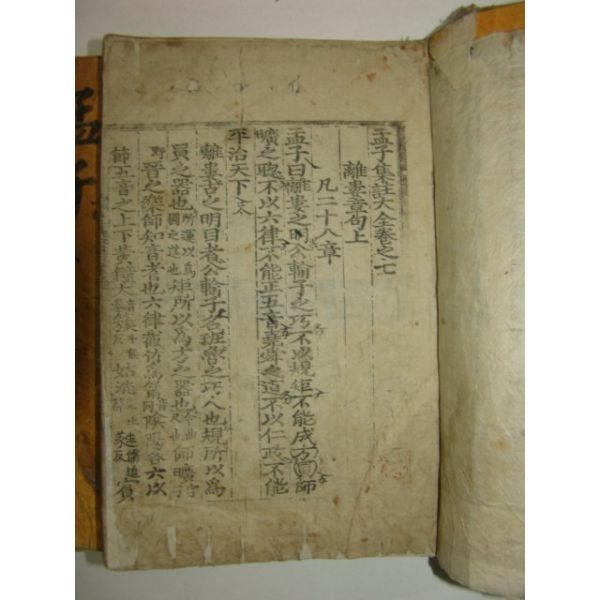 孟子集註大全卷之七
離婁章句上
凡二十八章
孟子曰離婁之明公輸子之巧不以規矩不能成方員師
曠之聰不以六律不能正五音堯舜之道不以仁政不能
平治天下
離婁古之明目者公輸子名班魯之巧人也規所以爲
員之器也矩所以爲方之器也師曠
晉之樂師知音者也六律截竹爲筩陰陽各六以
節五音之上下黃鍾大 姑洗 蕤賓
孟子